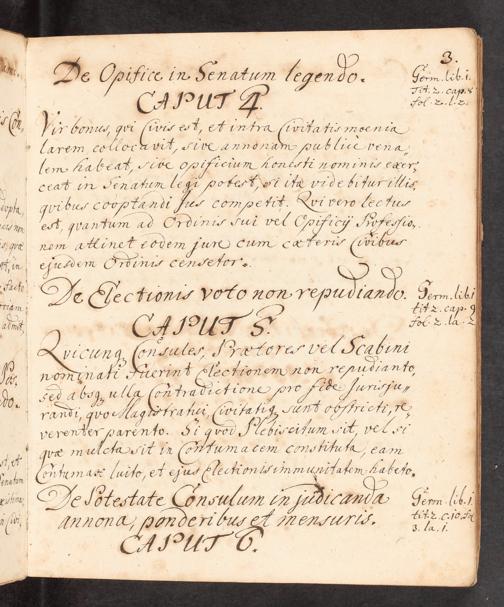 3.
De Opifice in Senatum legendo.
Germ. lib. 1.
tit. 2. cap. 8
fol. 2. l. 2.
CAPUT 4.
Vir bonus, qvi Civis est, et intra Civitatis moenia
larem collocavit, sive annonam publice vena,
lem habeat, sive opificium honesti nominis exer,
ceat in Senatum legi potest, si ita videbitur illis,
qvibus cooptandi Jus competit. Qvi vero lectus
est, qvantum ad Ordinis sui vel Opificij Professio,
nem attinet eodem jure cum cæteris Civibus
ejusdem Ordinis censetor.
De Electionis voto non repudiando.
Germ. lib. 1
tit. 2. cap. 9
fol. 2. la. 2
CAPUT 5.
Qvicunq Consules, Prætores vel Scabini
nominati fuerint Electionem non repudianto,
sed absq ulla Contradictione pro fide Jurisju,,
randi, qvo Magistratui Civitatiq sunt obstricti, re,
verenter parento. Si qvod Plebiscitum sit, vel si
qvæ mulcta sit in Contumacem constituta, eam
Contumax luito, et ejus Electionis immunitatem habeto.
De Potestate Consulum in judicanda
annona, ponderibus et mensuris.
Germ. lib. 1
tit. 2. c. 10. fol
3. la. 1.
CAPUT 6.